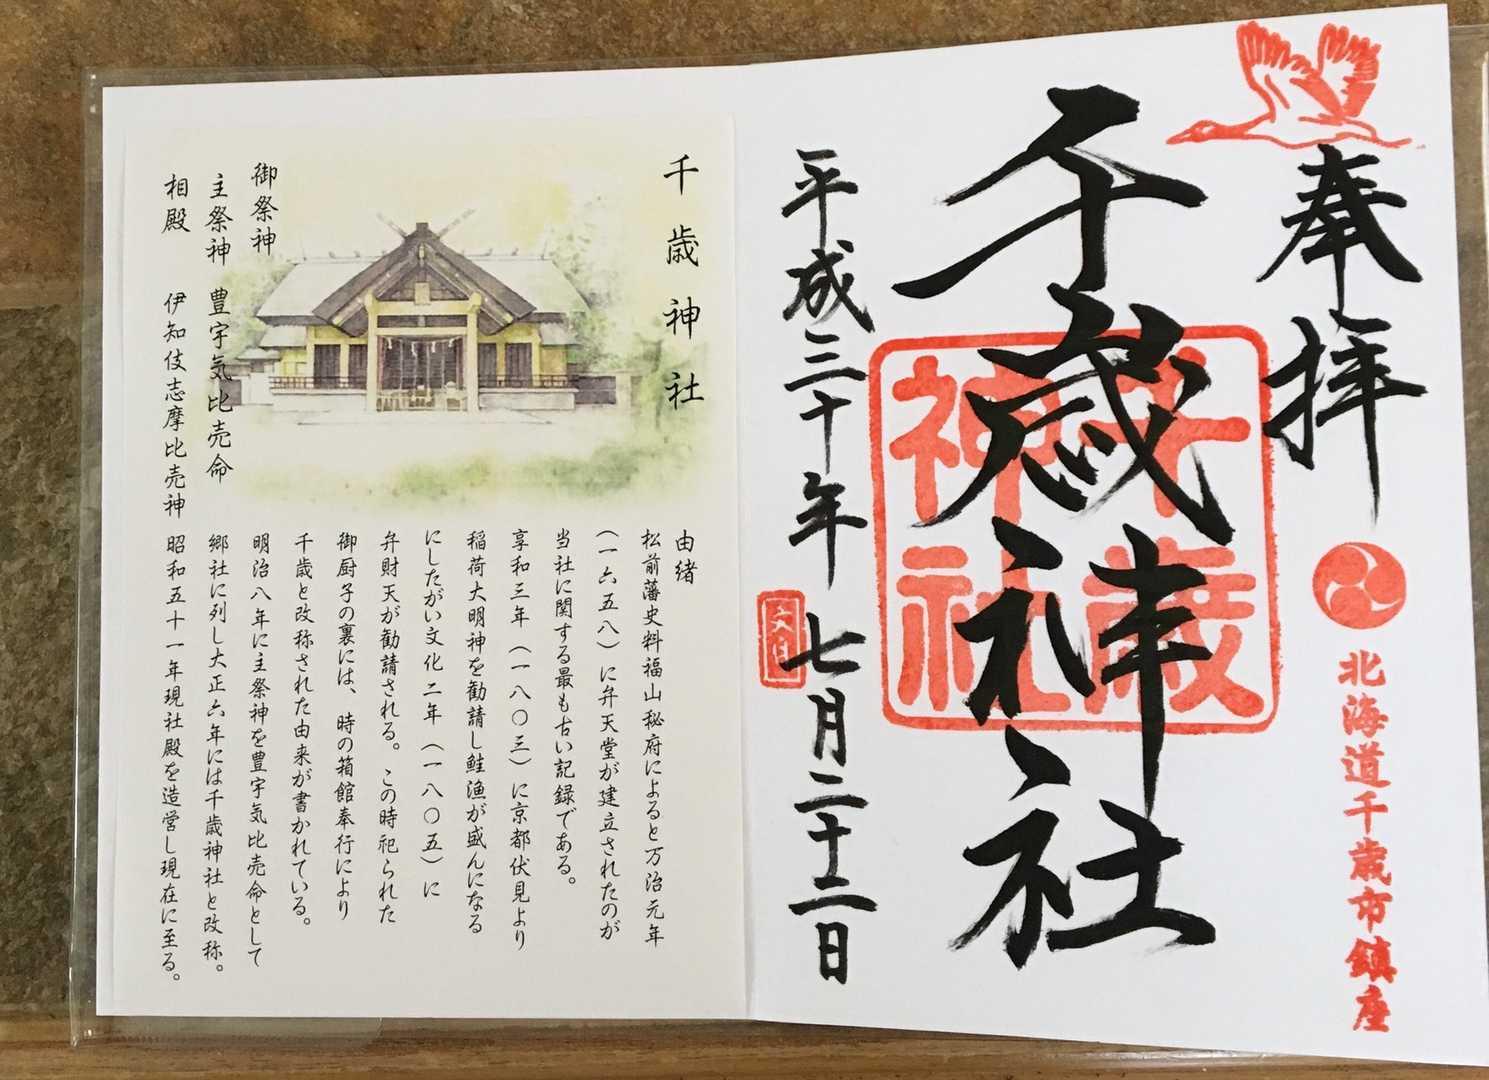 奉拝
北海道千歳市鎮座
千歳神社
千歳
神社
平成三十年七月二十二日
千歳神社
御祭神
主祭神 豊宇気比売命
相殿 伊知伎志摩比売神
由緒
松前藩史料福山秘府によると万治元年
(一六五八)に弁天堂が建立されたのが
当社に関する最も古い記録である。
享和三年(一八〇三)に京都伏見より
稲荷大明神を勧請し鮭漁が盛んになる
にしたがい文化二年(一八〇五)に
弁財天が勧請される。この時祀られた
御厨子の裏には、時の箱館奉行により
千歳と改称された由来が書かれている。
明治八年に主祭神を豊宇気比売命として
郷社に列し大正六年には千歳神社と改称。
昭和五十一年現社殿を造営し現在に至る。